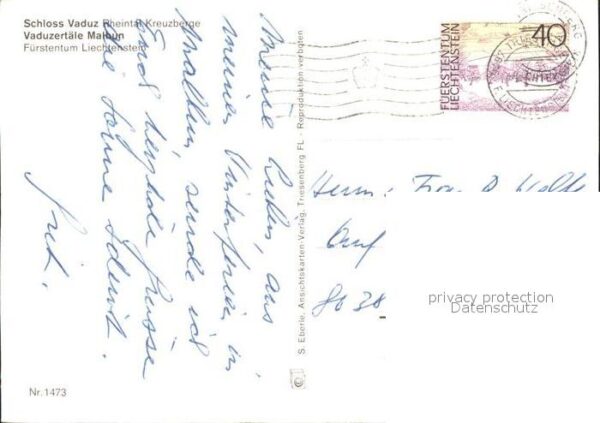 Schloss Vaduz Rheintal Kreuzberge
Vaduzertäle Malbun
Fürstentum Liechtenstein
Meine Lieben, aus
meinen Winterferien in
Malbun sende ich
Euch herzliche Grüsse
Die Sonne scheint.
Nr. 1473
S. Eberle, Ansichtskarten-Verlag, Triesenberg FL - Reproduktion verboten
FUERSTENTUM
LIECHTENSTEIN
40
Herrn + Frau
8038
privacy protection
Datenschutz